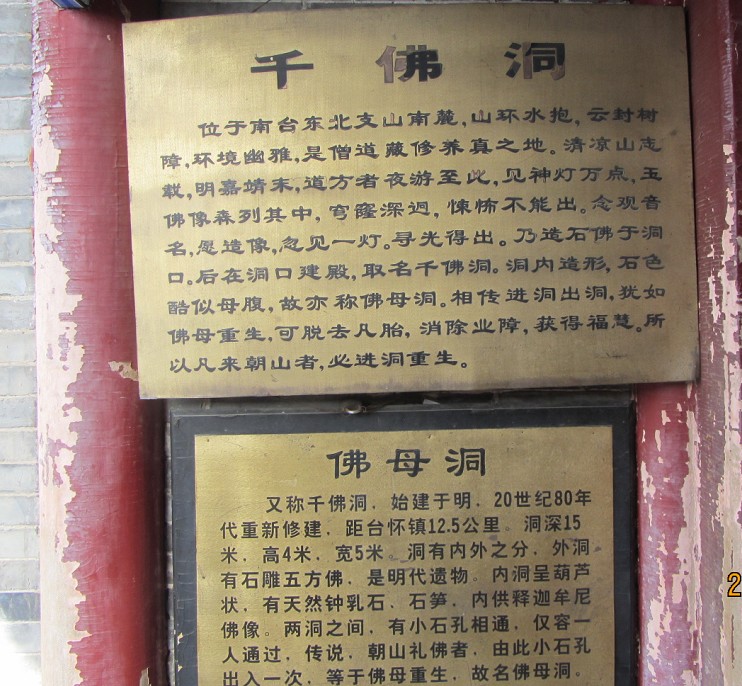 千佛洞
位于南台东北支山南麓,山环水抱,云封树
障,环境幽雅,是僧道藏修养真之地。清凉山志
载,明嘉靖末,道方者夜游至此,见神灯万点,玉
佛像森列其中,穹窿深迥,悚怖不能出。念观音
名,愿造像,忽见一灯。寻光得出。乃造石佛于洞
口。后在洞口建殿,取名千佛洞。洞内造形,石色
酷似母腹,故亦称佛母洞。相传进洞出洞,犹如
佛母重生,可脱去凡胎,消除业障,获得福慧。所
以凡来朝山者,必进洞重生。
佛母洞
又称千佛洞，始建于明，20世纪80年
代重新修建，距台怀镇12.5公里。洞深15
米，高4米，宽5米。洞有内外之分，外洞
有石雕五方佛，是明代遗物。内洞呈葫芦
状，有天然钟乳石、石笋，内供释迦牟尼
佛像。两洞之间，有小石孔相通，仅容一
人通过，传说，朝山礼佛者，由此小石孔
出入一次，等于佛母重生，故名佛母洞。
2